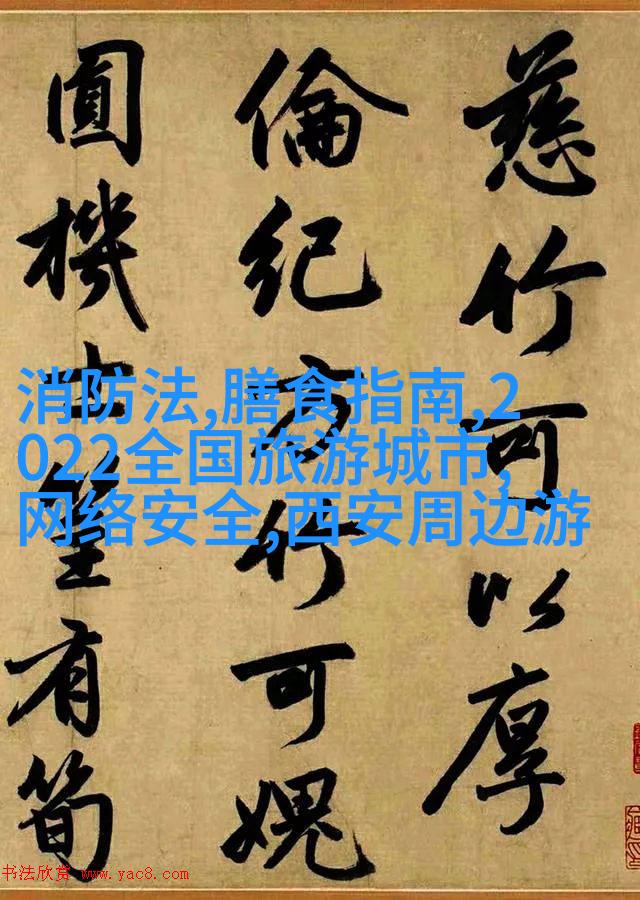 慈竹可以厚
倫紀方竹可愧
圓機士筀有筍
消防法,膳食指南,2
022全国旅游城市,
网络安全,西安周边游
书法欣赏 www.yac8.com